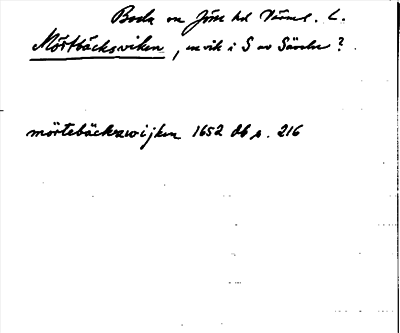 Boda sn Jösse hd Värml. L.
Mörtbäcksviken, en vik i S av Särsln?
mörtebäckzwijken 1652 db s. 216